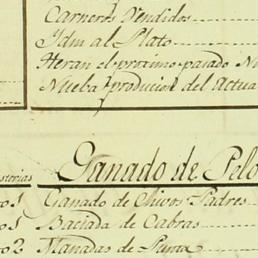 Carneros Vendidos
Idm al Plato
Heran el proximo pasado
Nueba producion del Actua
Ganado de Pelo
storias
o 1 Ganado de Chivos Padres
o 1 Baciada de Cabras
o 2 Manadas de